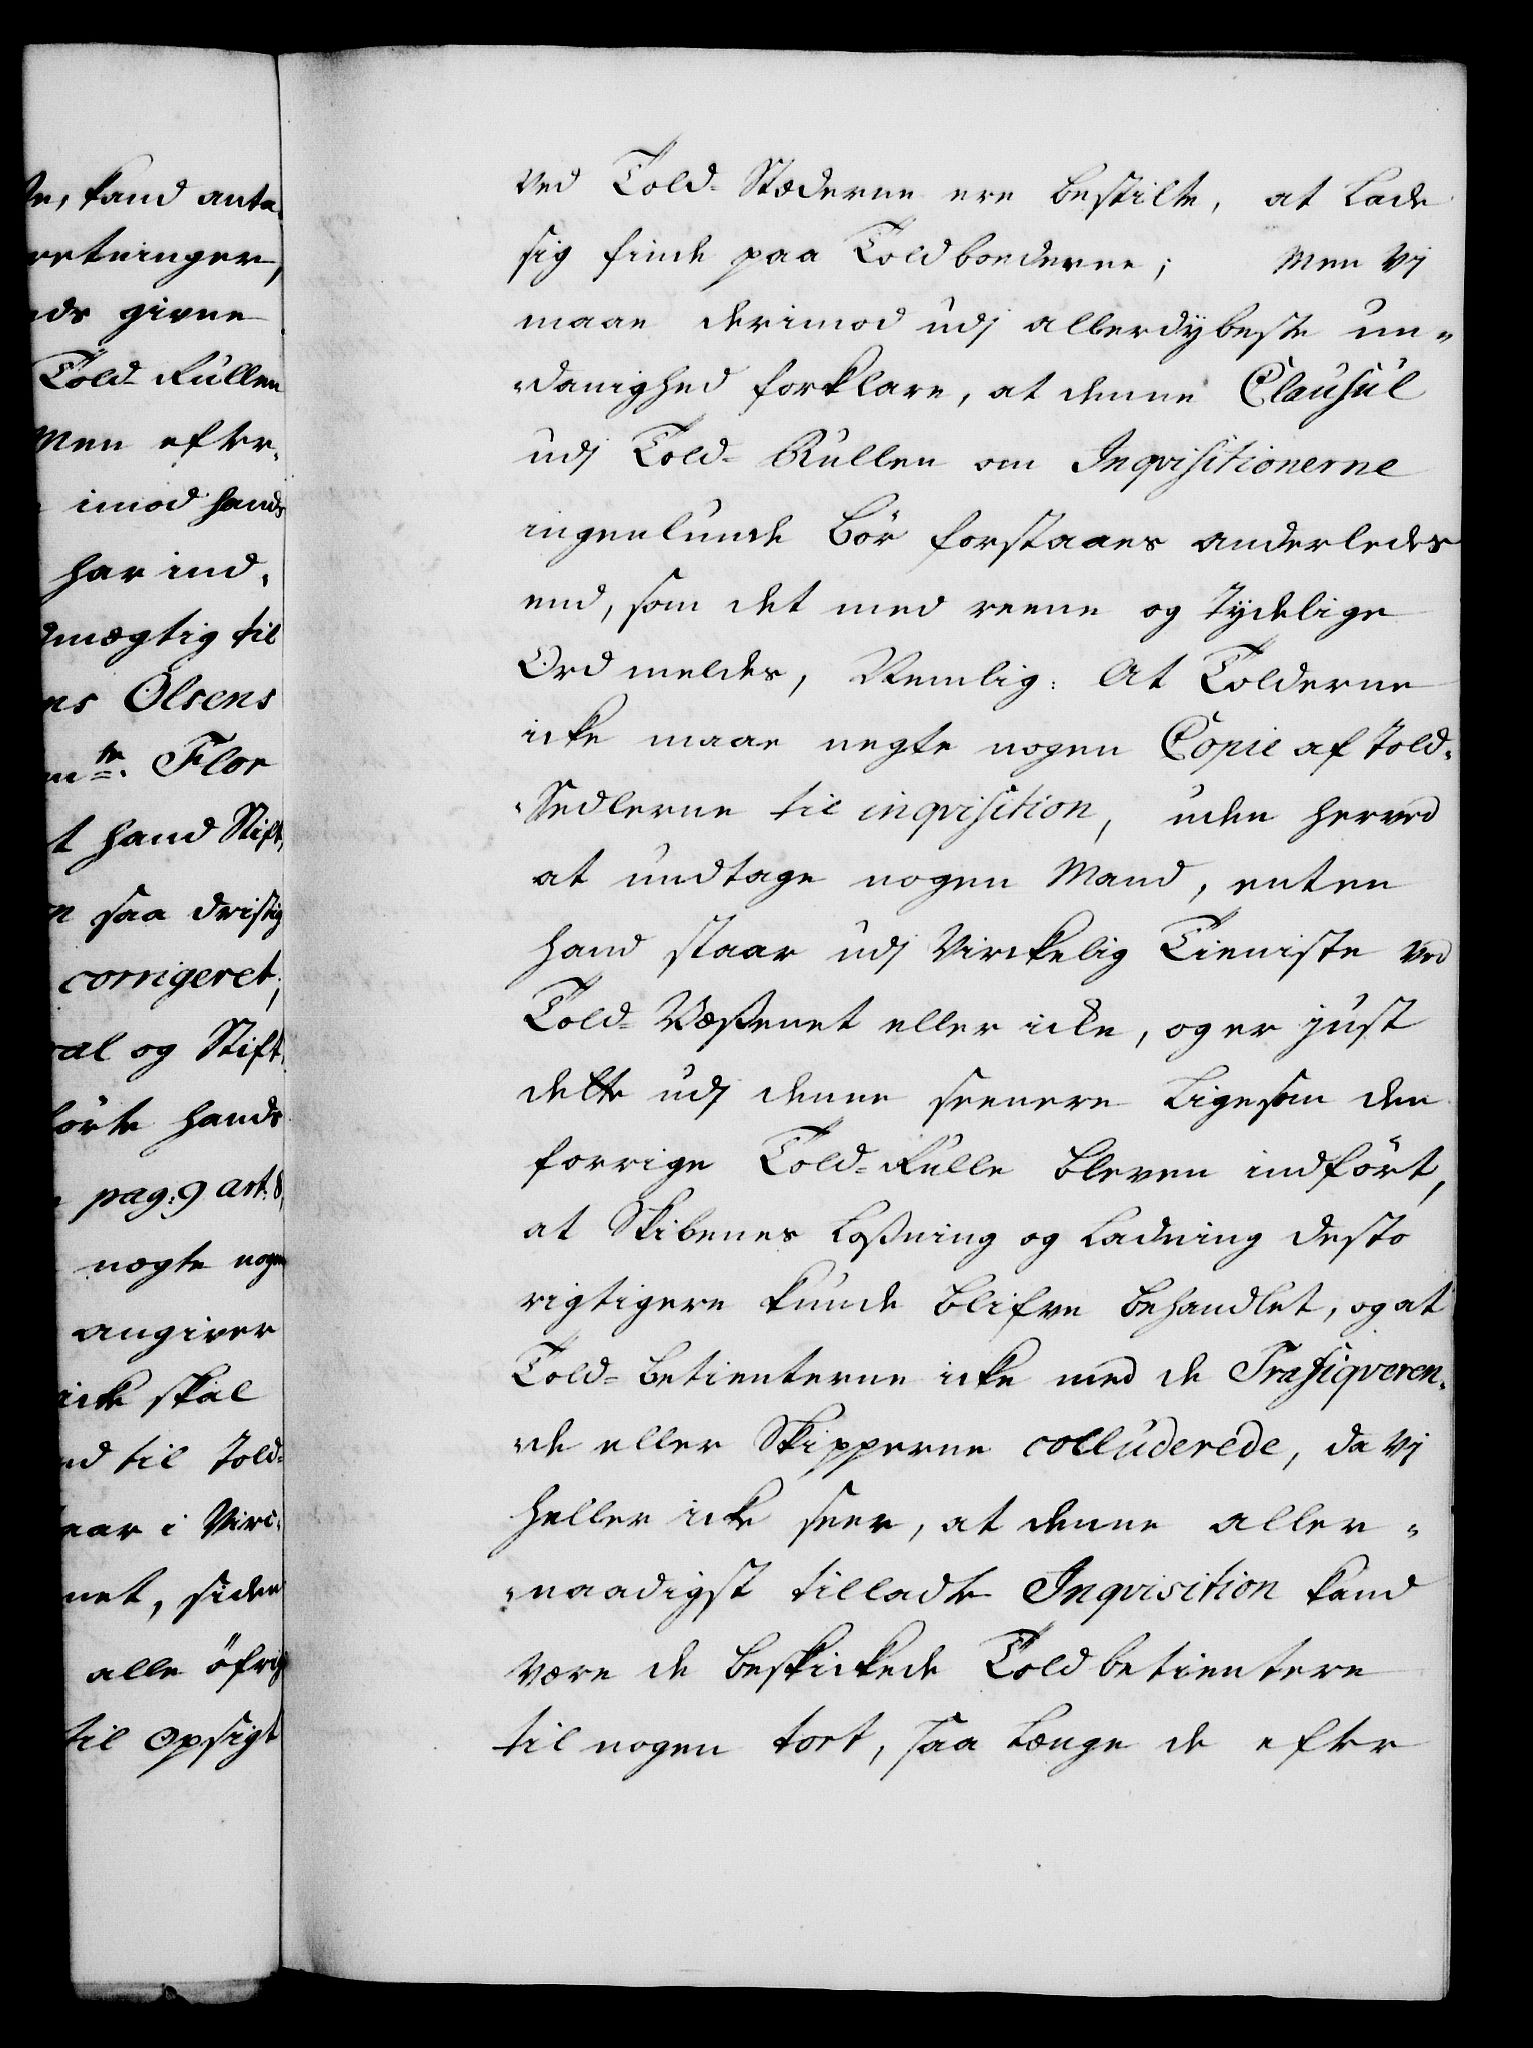 de, kand anta-
retninger,
nds givne
Told-Rullen
Men efter-
imod hands
har ind-
mægtig til
ns Olsens
Flor
t hand Stift-
n saa dristig
corrigeret;
ral og Stift-
førte hands
pag: 9 art: 8,
nægte nogen
angiver
icke skal
nd til Told-
aar i Virc-
net, siden
alle öfrig
til opsigt
ved Told-Stæderne ere bestilte, at lade
sig finde paa Toldboederne; Men Vj
maae derimod udj allerdybeste un-
-danighed forklare, at denne Clausul
udj Told-Rullen om Inqvisitionerne
ingenlunde bör forstaaes anderledes
end, som det med reene og tydelige
Ord meldes, Nemlig: At Tolderne
icke maae negte nogen Copie af Told-
-Sedlerne til inqvisition, uden herved
at undtage nogen Mand, enten
hand staar udj Virckelig Tieniste ved
Told-Væßenet eller icke, og er just
dette udj denne seenere ligesom den
forrige Told-Rulle bleven indført,
at Skibenes Loßning og Ladning desto
rigtigere kunde blifve behandlet, og at
Told-betienterne icke med de Trafiqveren-
-de eller Skipperne colluderede, da Vj
heller icke seer, at denne aller-
-naadigst tilladte Inqvisition kand
være de beskickede Toldbetientere
til nogen tort, saa længe de efter